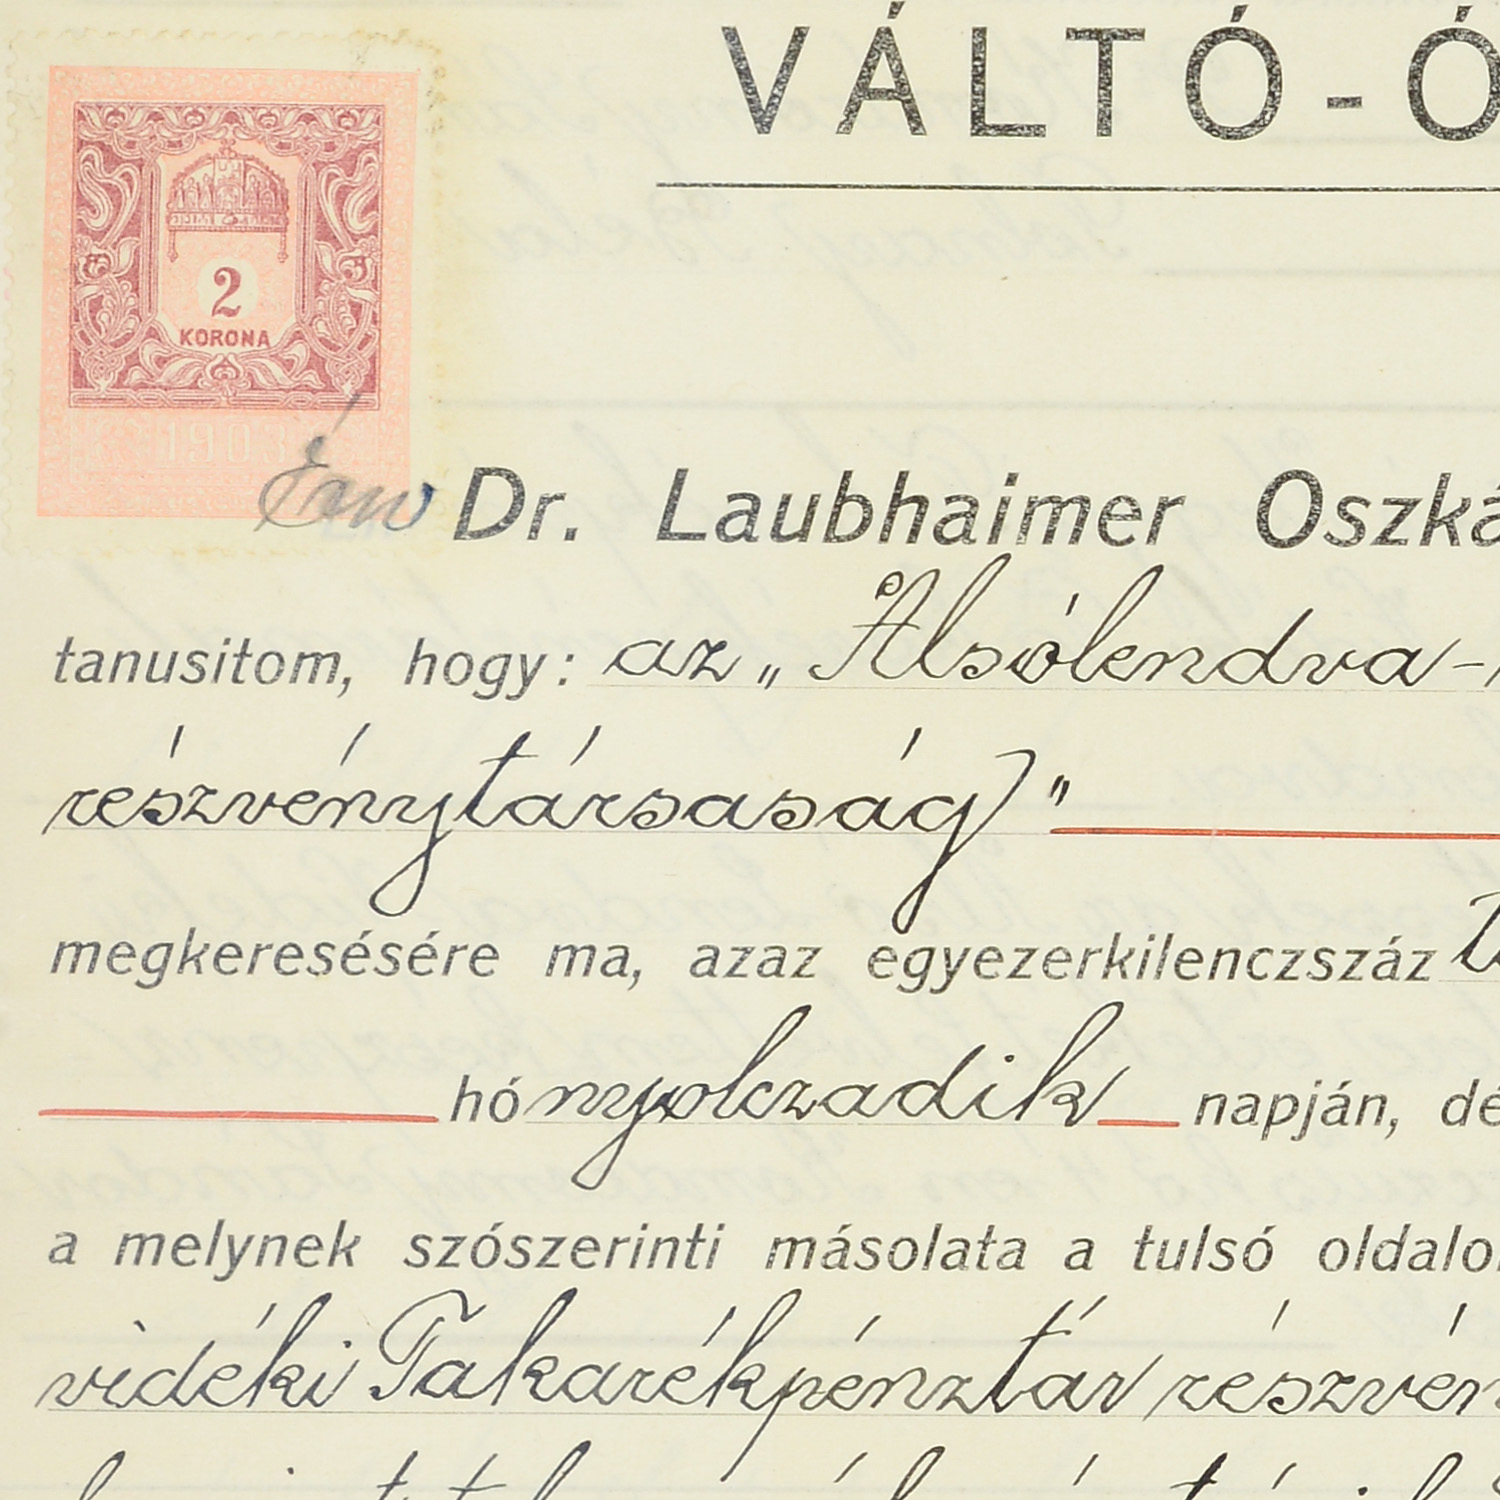 VÁLTÓ-Ó
2
KORONA
1903
Dr. Laubhaimer Oszká
tanusitom, hogy: az „Alsólendva-
részvénytársaság"
megkeresésére ma, azaz egyezerkilenczszáz
hó nyolczadik napján, dé
a melynek szószerinti másolata a tulsó oldalo
vidéki Takarékpénztár részvén